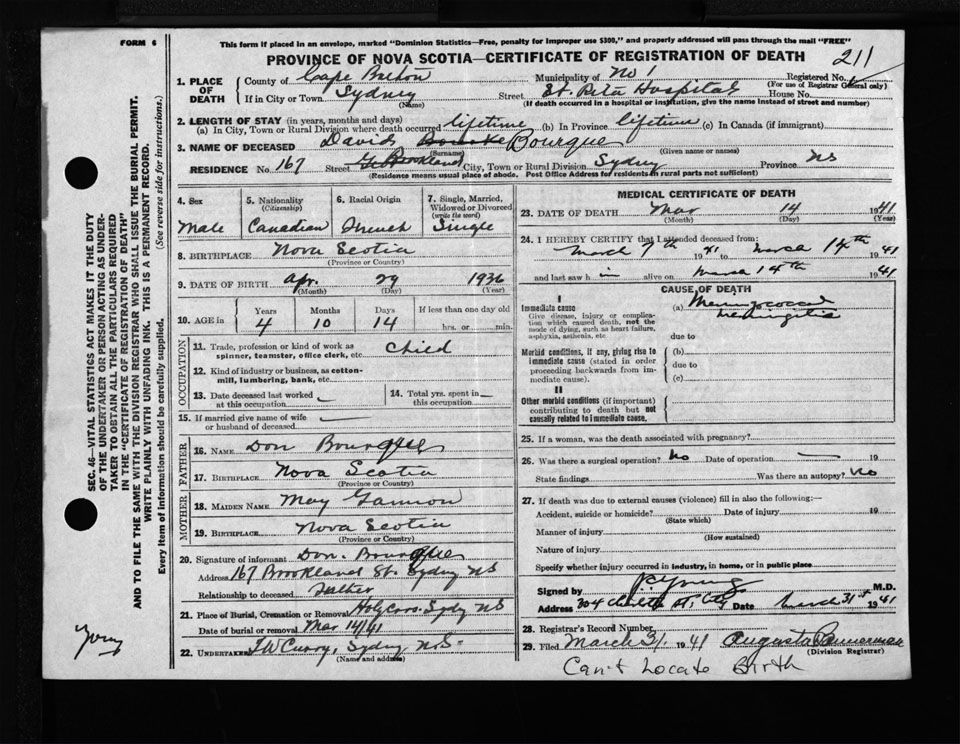 FORM 6
This form if placed in an envelope, marked "Dominion Statistics—Free, penalty for improper use $300," and properly addressed will pass through the mail "FREE"
PROVINCE OF NOVA SCOTIA—CERTIFICATE OF REGISTRATION OF DEATH 211
1. PLACE OF DEATH
County of Cape Breton Municipality of No 1 Registered No.
(For use of Registrar General only)
If in City or Town Sydney Street St. Rita Hospital House No.
(Name) (If death occurred in a hospital or institution, give the name instead of street and number)
2. LENGTH OF STAY (in years, months and days)
(a) In City, Town or Rural Division where death occurred lifetime (b) In Province lifetime (c) In Canada (if immigrant)
3. NAME OF DECEASED David Bourque
(Surname) (Given name or names)
RESIDENCE No. 167 Street Brookland City, Town or Rural Division Sydney Province NS
(Residence means usual place of abode. Post Office Address for residents in rural parts not sufficient)
4. Sex
Male
5. Nationality
(Citizenship)
Canadian
6. Racial Origin
French
7. Single, Married, Widowed or Divorced
(write the word)
Single
8. BIRTHPLACE Nova Scotia
(Province or Country)
9. DATE OF BIRTH Apr. 29 1936
(Month) (Day) (Year)
10. AGE in
Years Months Days If less than one day
4 10 14 hrs. or min.
OCCUPATION
11. Trade, profession or kind of work as spinner, teamster, office clerk, etc. Child
12. Kind of industry or business, as cotton-mill, lumbering, bank, etc.
13. Date deceased last worked at this occupation
14. Total yrs. spent in this occupation
15. If married give name of wife or husband of deceased
FATHER
16. NAME Don Bourque
17. BIRTHPLACE Nova Scotia
(Province or Country)
MOTHER
18. MAIDEN NAME May Gannon
19. BIRTHPLACE Nova Scotia
(Province or Country)
20. Signature of informant Don. Bourque
Address 167 Brookland St. Sydney NS
Relationship to deceased Father
21. Place of Burial, Cremation or Removal Holy Cross. Sydney NS
Date of burial or removal Mar 14/41
22. UNDERTAKER J W Curry, Sydney N.S.
(Name and address)
MEDICAL CERTIFICATE OF DEATH
23. DATE OF DEATH Mar 14 1941
(Month) (Day) (Year)
24. I HEREBY CERTIFY that I attended deceased from:
March 7th 1941 to March 14th 1941
and last saw him alive on March 14th 1941
CAUSE OF DEATH
I
Immediate cause
Give disease, injury or complication which caused death, not the mode of dying, such as heart failure, asphyxia, asthenia, etc
(a) Meningococcal meningitis
due to
Morbid conditions, if any, giving rise to immediate cause (stated in order proceeding backwards from immediate cause).
(b)
due to
(c)
II
Other morbid conditions (if important) contributing to death but not causally related to immediate cause.
25. If a woman, was the death associated with pregnancy?
26. Was there a surgical operation? No Date of operation — 19
State findings Was there an autopsy? No
27. If death was due to external causes (violence) fill in also the following:—
Accident, suicide or homicide? Date of injury 19
(State which)
Manner of injury
(How sustained)
Nature of injury
Specify whether injury occurred in industry, in home, or in public place
Signed by Young M.D.
Address 204 Date March 31st 1941
28. Registrar's Record Number
29. Filed March 31 1941 Augusta Bannerman
(Division Registrar)
Can't Locate Birth
SEC. 46—VITAL STATISTICS ACT MAKES IT THE DUTY
OF THE UNDERTAKER OR PERSON ACTING AS UNDER-
TAKER TO OBTAIN ALL THE PARTICULARS REQUIRED
IN THE "CERTIFICATE OF REGISTRATION OF DEATH"
AND TO FILE THE SAME WITH THE DIVISION REGISTRAR WHO SHALL ISSUE THE BURIAL PERMIT.
WRITE PLAINLY WITH UNFADING INK. THIS IS A PERMANENT RECORD.
Every item of information should be carefully supplied. (See reverse side for instructions.)